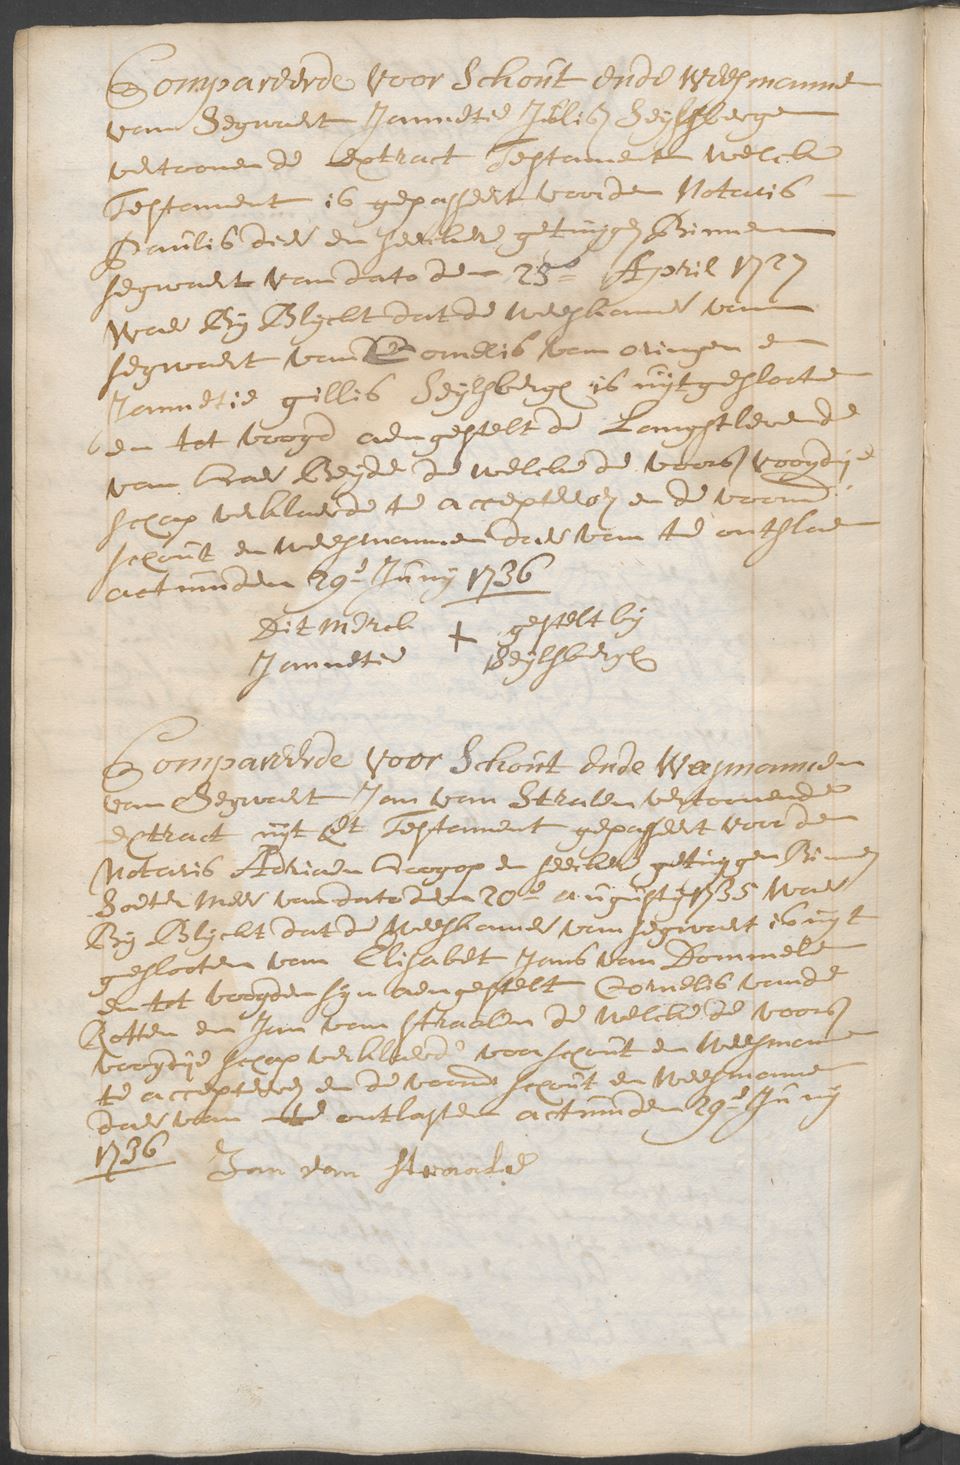 Compareerde voor Schout ende Weesmanne
van Segwaert Jannetie Jillis Seijlsberge
vertoonende extract Testament welcke
Testament is gepasseert voorden Notaris
Paulis dier en seeckere getuijgen Binnen
segwaert van dato den 23e April 1727
Waer Bij Blyckt dat de weeskamer van
segwaert van Cornelis van oringen en
Jannetie gillis Seijlsberge is uijtgeslooten
en tot voogd aengestelt de Langstlevende
van haer Beijde de welcke de voors voogdije
schap verklaerde te accepteren en de voorn
schout en weesmannen daer van te ontslaen
actum den 29e Junij 1736
Dit merck + gestelt bij
Jannetie Seijlsberge
Compareerde voor Schout Ende Weesmannen
van Segwaert Jan van Stralen vertoonende
extract uijt het Testament gepasseert voor den
Notaris Adriaen hoogop en seeckere getuijgen Binnen
Soetermeer van dato den 20e augustij 1735 Waer
Bij Blyckt dat de Weeskamer van segwaert is uijt
geslooten van Elisabet Jans van Dommele
en tot voogden sijn aengestelt Cornelis vande
Rotten en Jan van straalen de welcke de voors
voogdije schap verklaerde voor schout en Weesmanne
te accepteren en de voorn schout en Weesmannen
daer van te ontlasten actum den 29e Junij
1736 Jan van straale